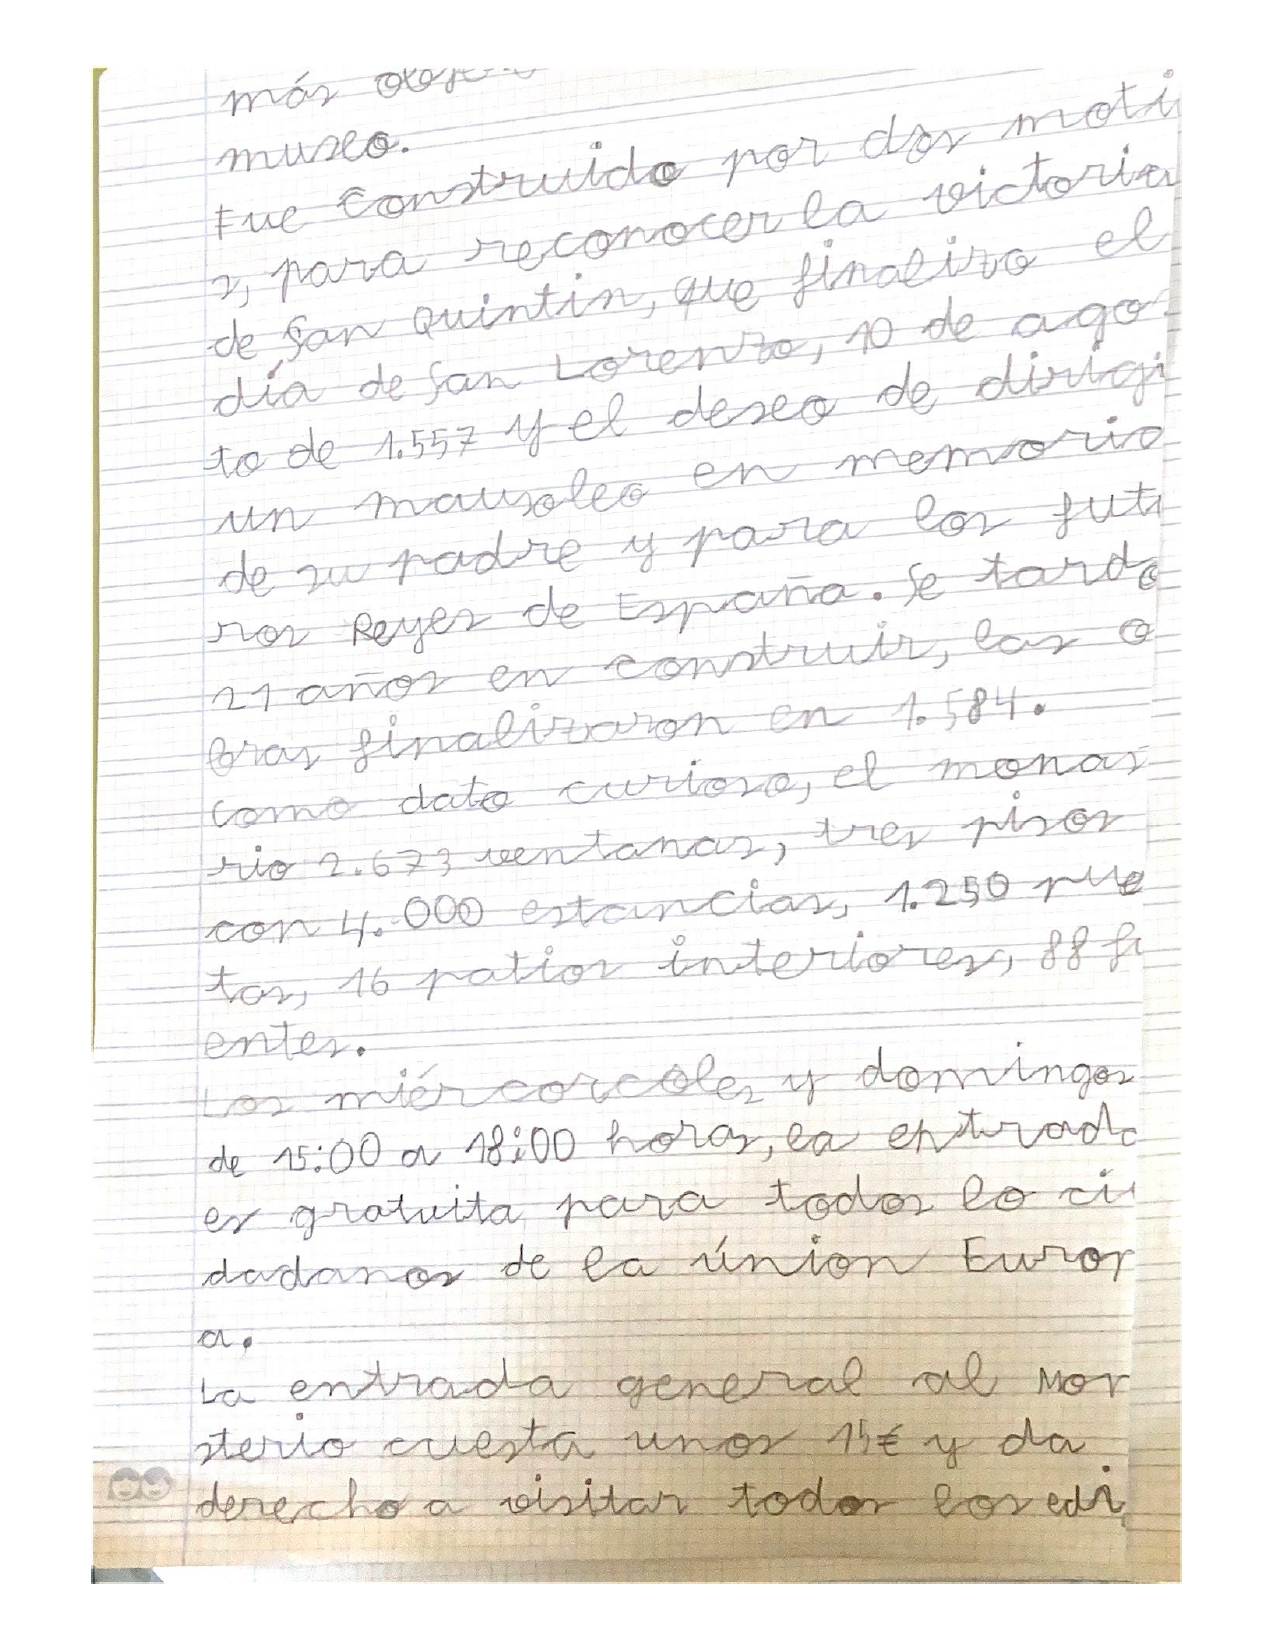 más
museo.
Fue construido por dos moti
s, para reconocer la victoria
de San Quintin, que finalizo el
día de San Lorenzo, 10 de agos
to de 1.557 y el deseo de dirigi
un mausoleo en memoria
de su padre y para los futu
ros Reyes de España. Se tardo
21 años en construir, las o
bras finalizaron en 1.584.
Como dato curioso, el monas
rio 2.673 ventanas, tres pisos
con 4.000 estancias, 1.250 pue
tas, 16 patios interiores, 88 fu
entes.
Los miércorcoles y domingos
de 15:00 a 18:00 horas, la entrada
es gratuita para todos lo ciu
dadanos de la únion Europ
a.
La entrada general al Mon
sterio cuesta unos 15€ y da
derecho a visitar todos los edi